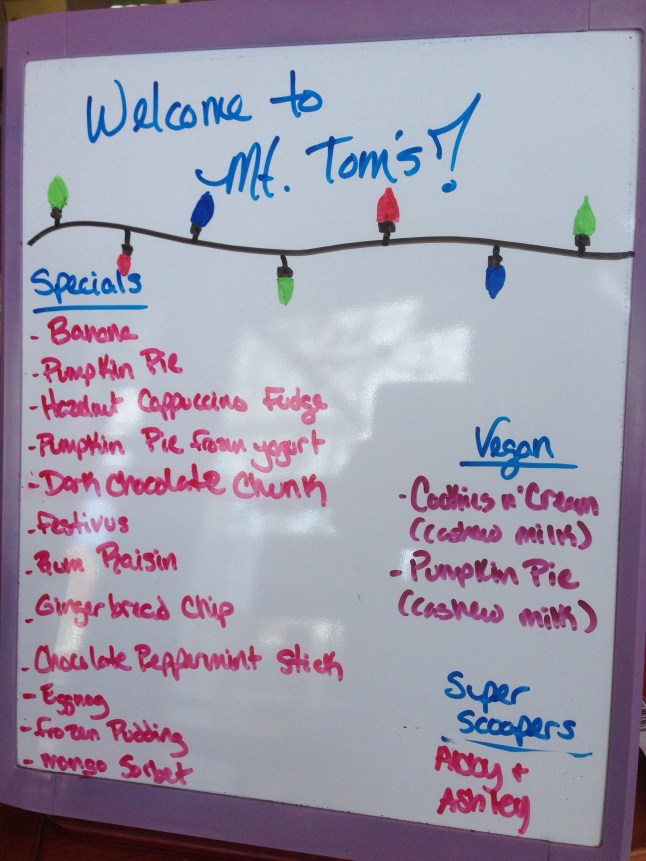 Welcome to
Mt. Tom's!
Specials
- Banana
- Pumpkin Pie
- Hazelnut Cappuccino Fudge
- Pumpkin Pie frozen yogurt
- Dark Chocolate Chunk
- Festivus
- Rum Raisin
- Gingerbread Chip
- Chocolate Peppermint Stick
- Eggnog
- Frozen Pudding
- Mango Sorbet
Vegan
- Cookies n' Cream
(cashew milk)
- Pumpkin Pie
(cashew milk)
Super
Scoopers
Abby +
Ashley